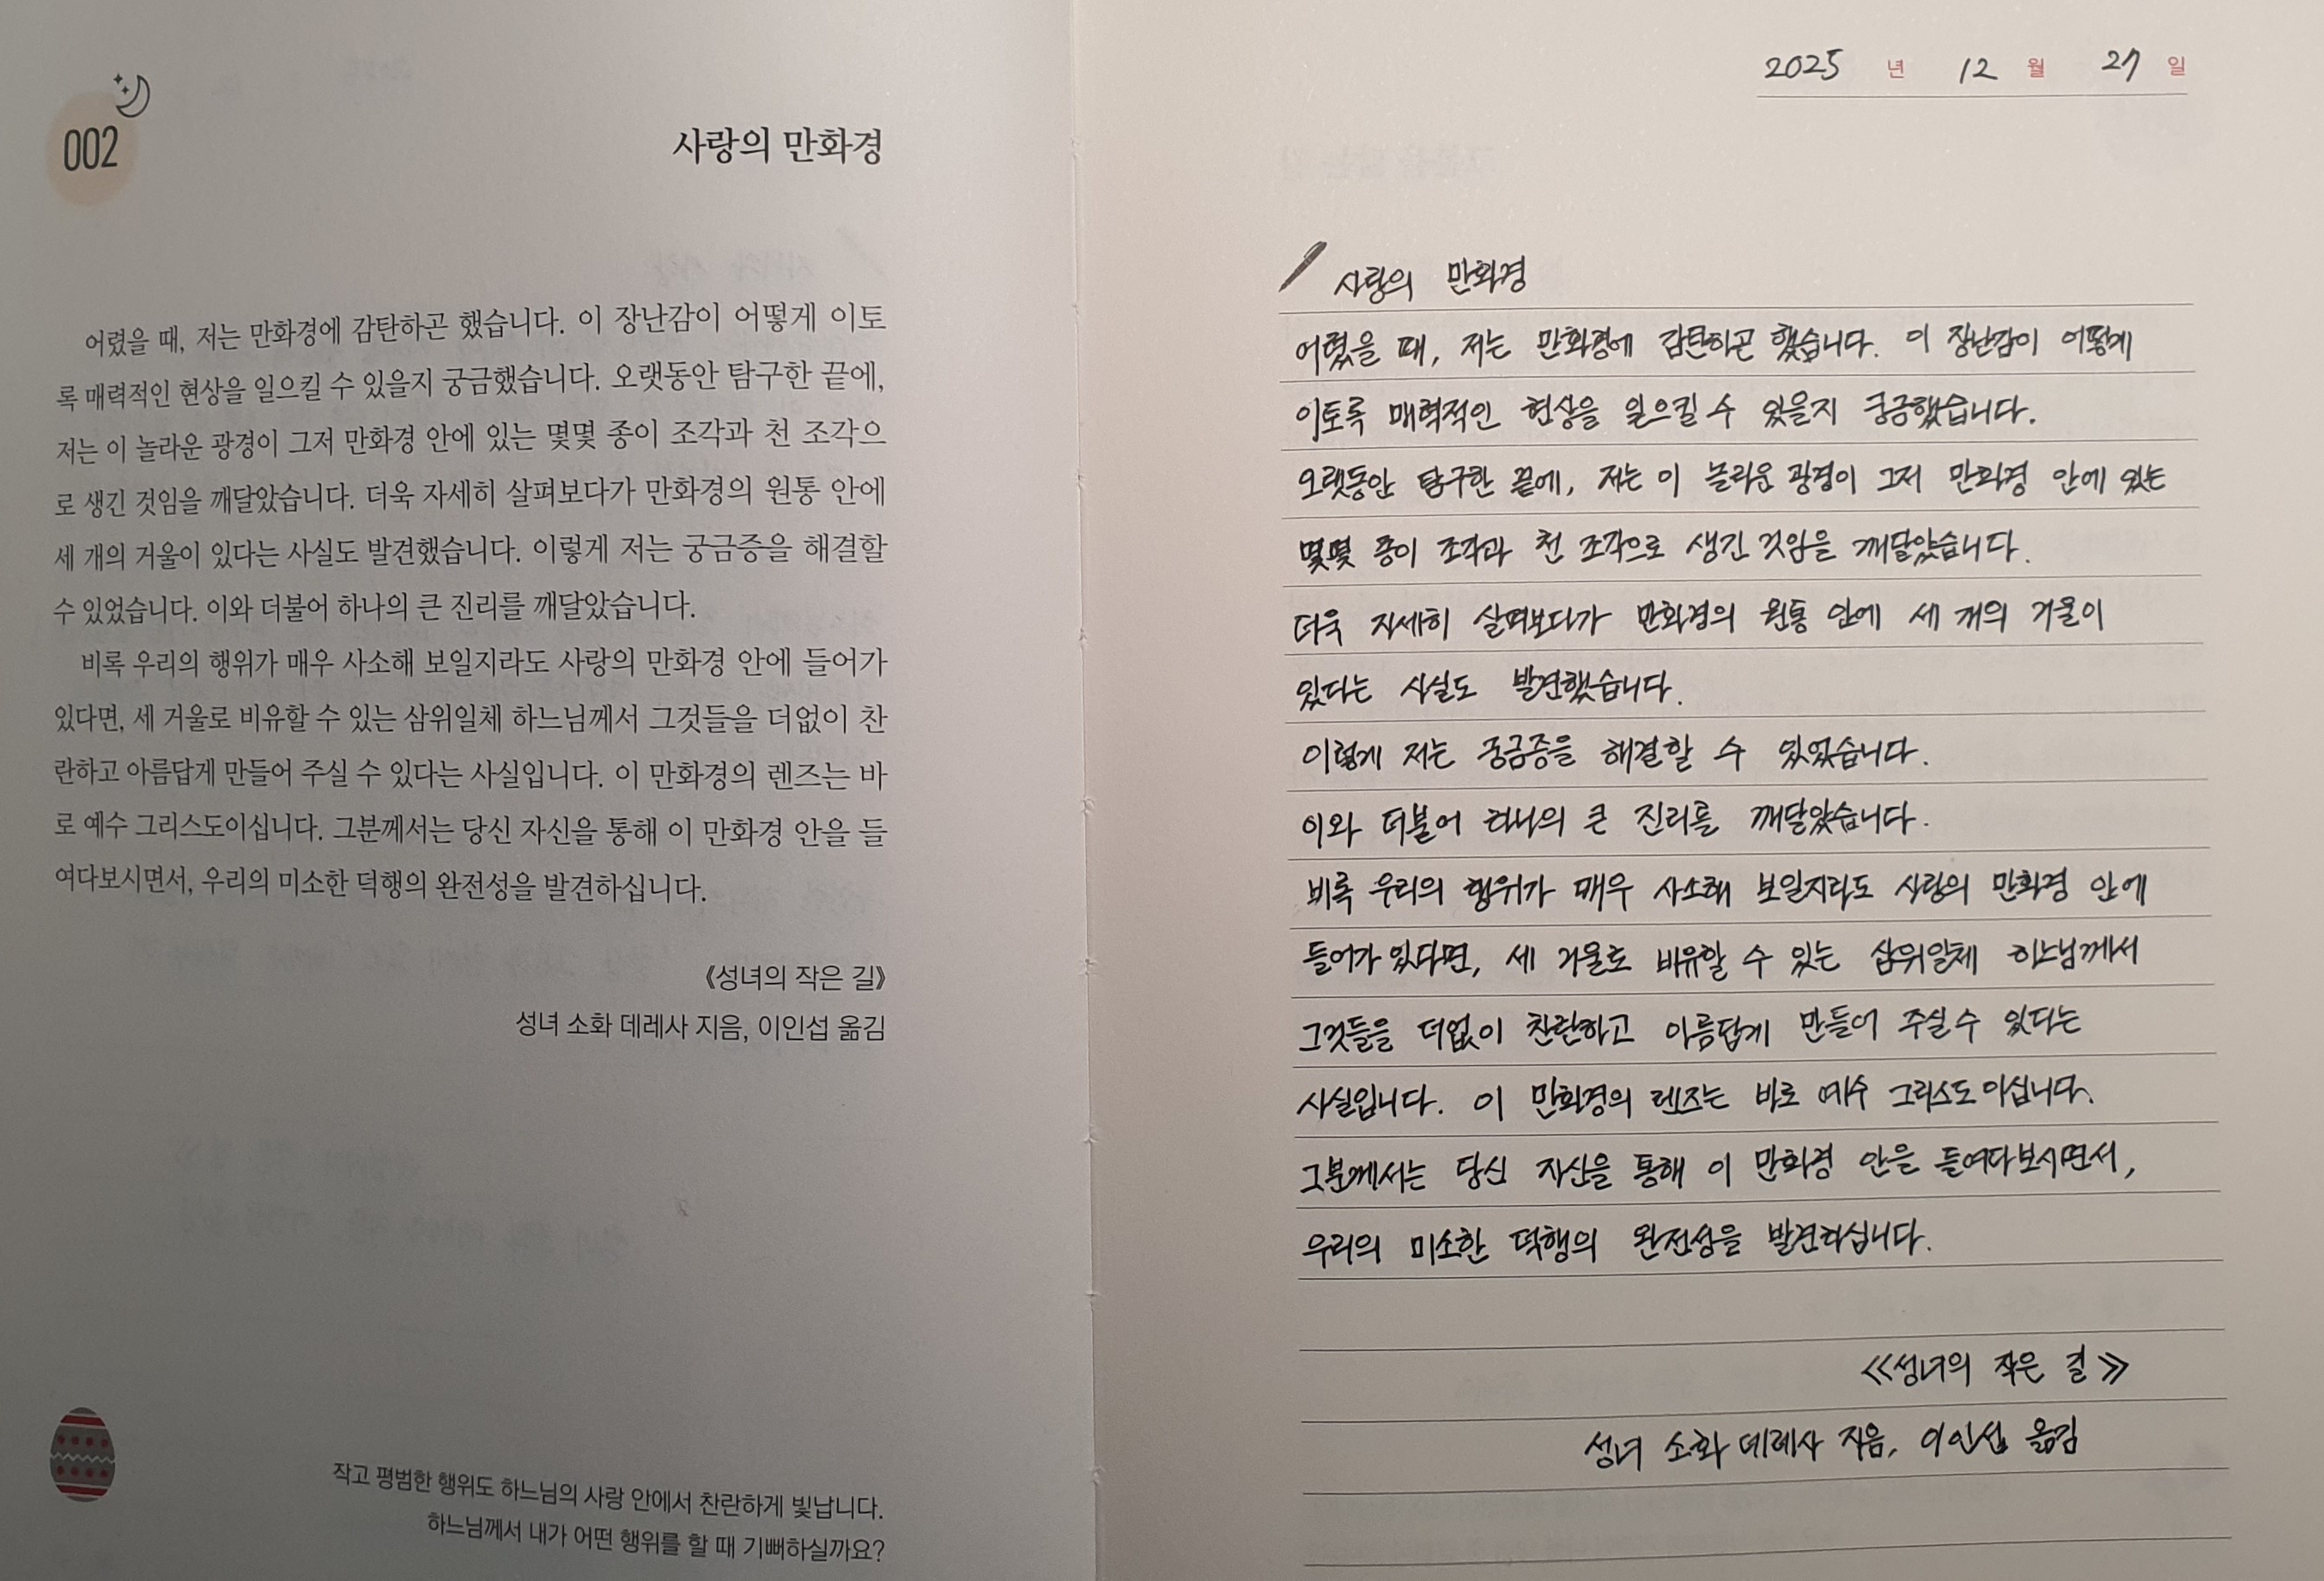 002
사랑의 만화경
어렸을 때, 저는 만화경에 감탄하곤 했습니다. 이 장난감이 어떻게 이토
록 매력적인 현상을 일으킬 수 있을지 궁금했습니다. 오랫동안 탐구한 끝에,
저는 이 놀라운 광경이 그저 만화경 안에 있는 몇몇 종이 조각과 천 조각으
로 생긴 것임을 깨달았습니다. 더욱 자세히 살펴보다가 만화경의 원통 안에
세 개의 거울이 있다는 사실도 발견했습니다. 이렇게 저는 궁금증을 해결할
수 있었습니다. 이와 더불어 하나의 큰 진리를 깨달았습니다.
비록 우리의 행위가 매우 사소해 보일지라도 사랑의 만화경 안에 들어가
있다면, 세 거울로 비유할 수 있는 삼위일체 하느님께서 그것들을 더없이 찬
란하고 아름답게 만들어 주실 수 있다는 사실입니다. 이 만화경의 렌즈는 바
로 예수 그리스도이십니다. 그분께서는 당신 자신을 통해 이 만화경 안을 들
여다보시면서, 우리의 미소한 덕행의 완전성을 발견하십니다.
《성녀의 작은 길》
성녀 소화 데레사 지음, 이인섭 옮김
작고 평범한 행위도 하느님의 사랑 안에서 찬란하게 빛납니다.
하느님께서 내가 어떤 행위를 할 때 기뻐하실까요?
2025 년 12 월 27 일
사랑의 만화경
어렸을 때, 저는 만화경에 감탄하곤 했습니다. 이 장난감이 어떻게
이토록 매력적인 현상을 일으킬 수 있을지 궁금했습니다.
오랫동안 탐구한 끝에, 저는 이 놀라운 광경이 그저 만화경 안에 있는
몇몇 종이 조각과 천 조각으로 생긴 것임을 깨달았습니다.
더욱 자세히 살펴보다가 만화경의 원통 안에 세 개의 거울이
있다는 사실도 발견했습니다.
이렇게 저는 궁금증을 해결할 수 있었습니다.
이와 더불어 하나의 큰 진리를 깨달았습니다.
비록 우리의 행위가 매우 사소해 보일지라도 사랑의 만화경 안에
들어가 있다면, 세 거울로 비유할 수 있는 삼위일체 하느님께서
그것들을 더없이 찬란하고 아름답게 만들어 주실 수 있다는
사실입니다. 이 만화경의 렌즈는 바로 예수 그리스도이십니다.
그분께서는 당신 자신을 통해 이 만화경 안을 들여다보시면서,
우리의 미소한 덕행의 완전성을 발견하십니다.
≪성녀의 작은 길≫
성녀 소화 데레사 지음, 이인섭 옮김